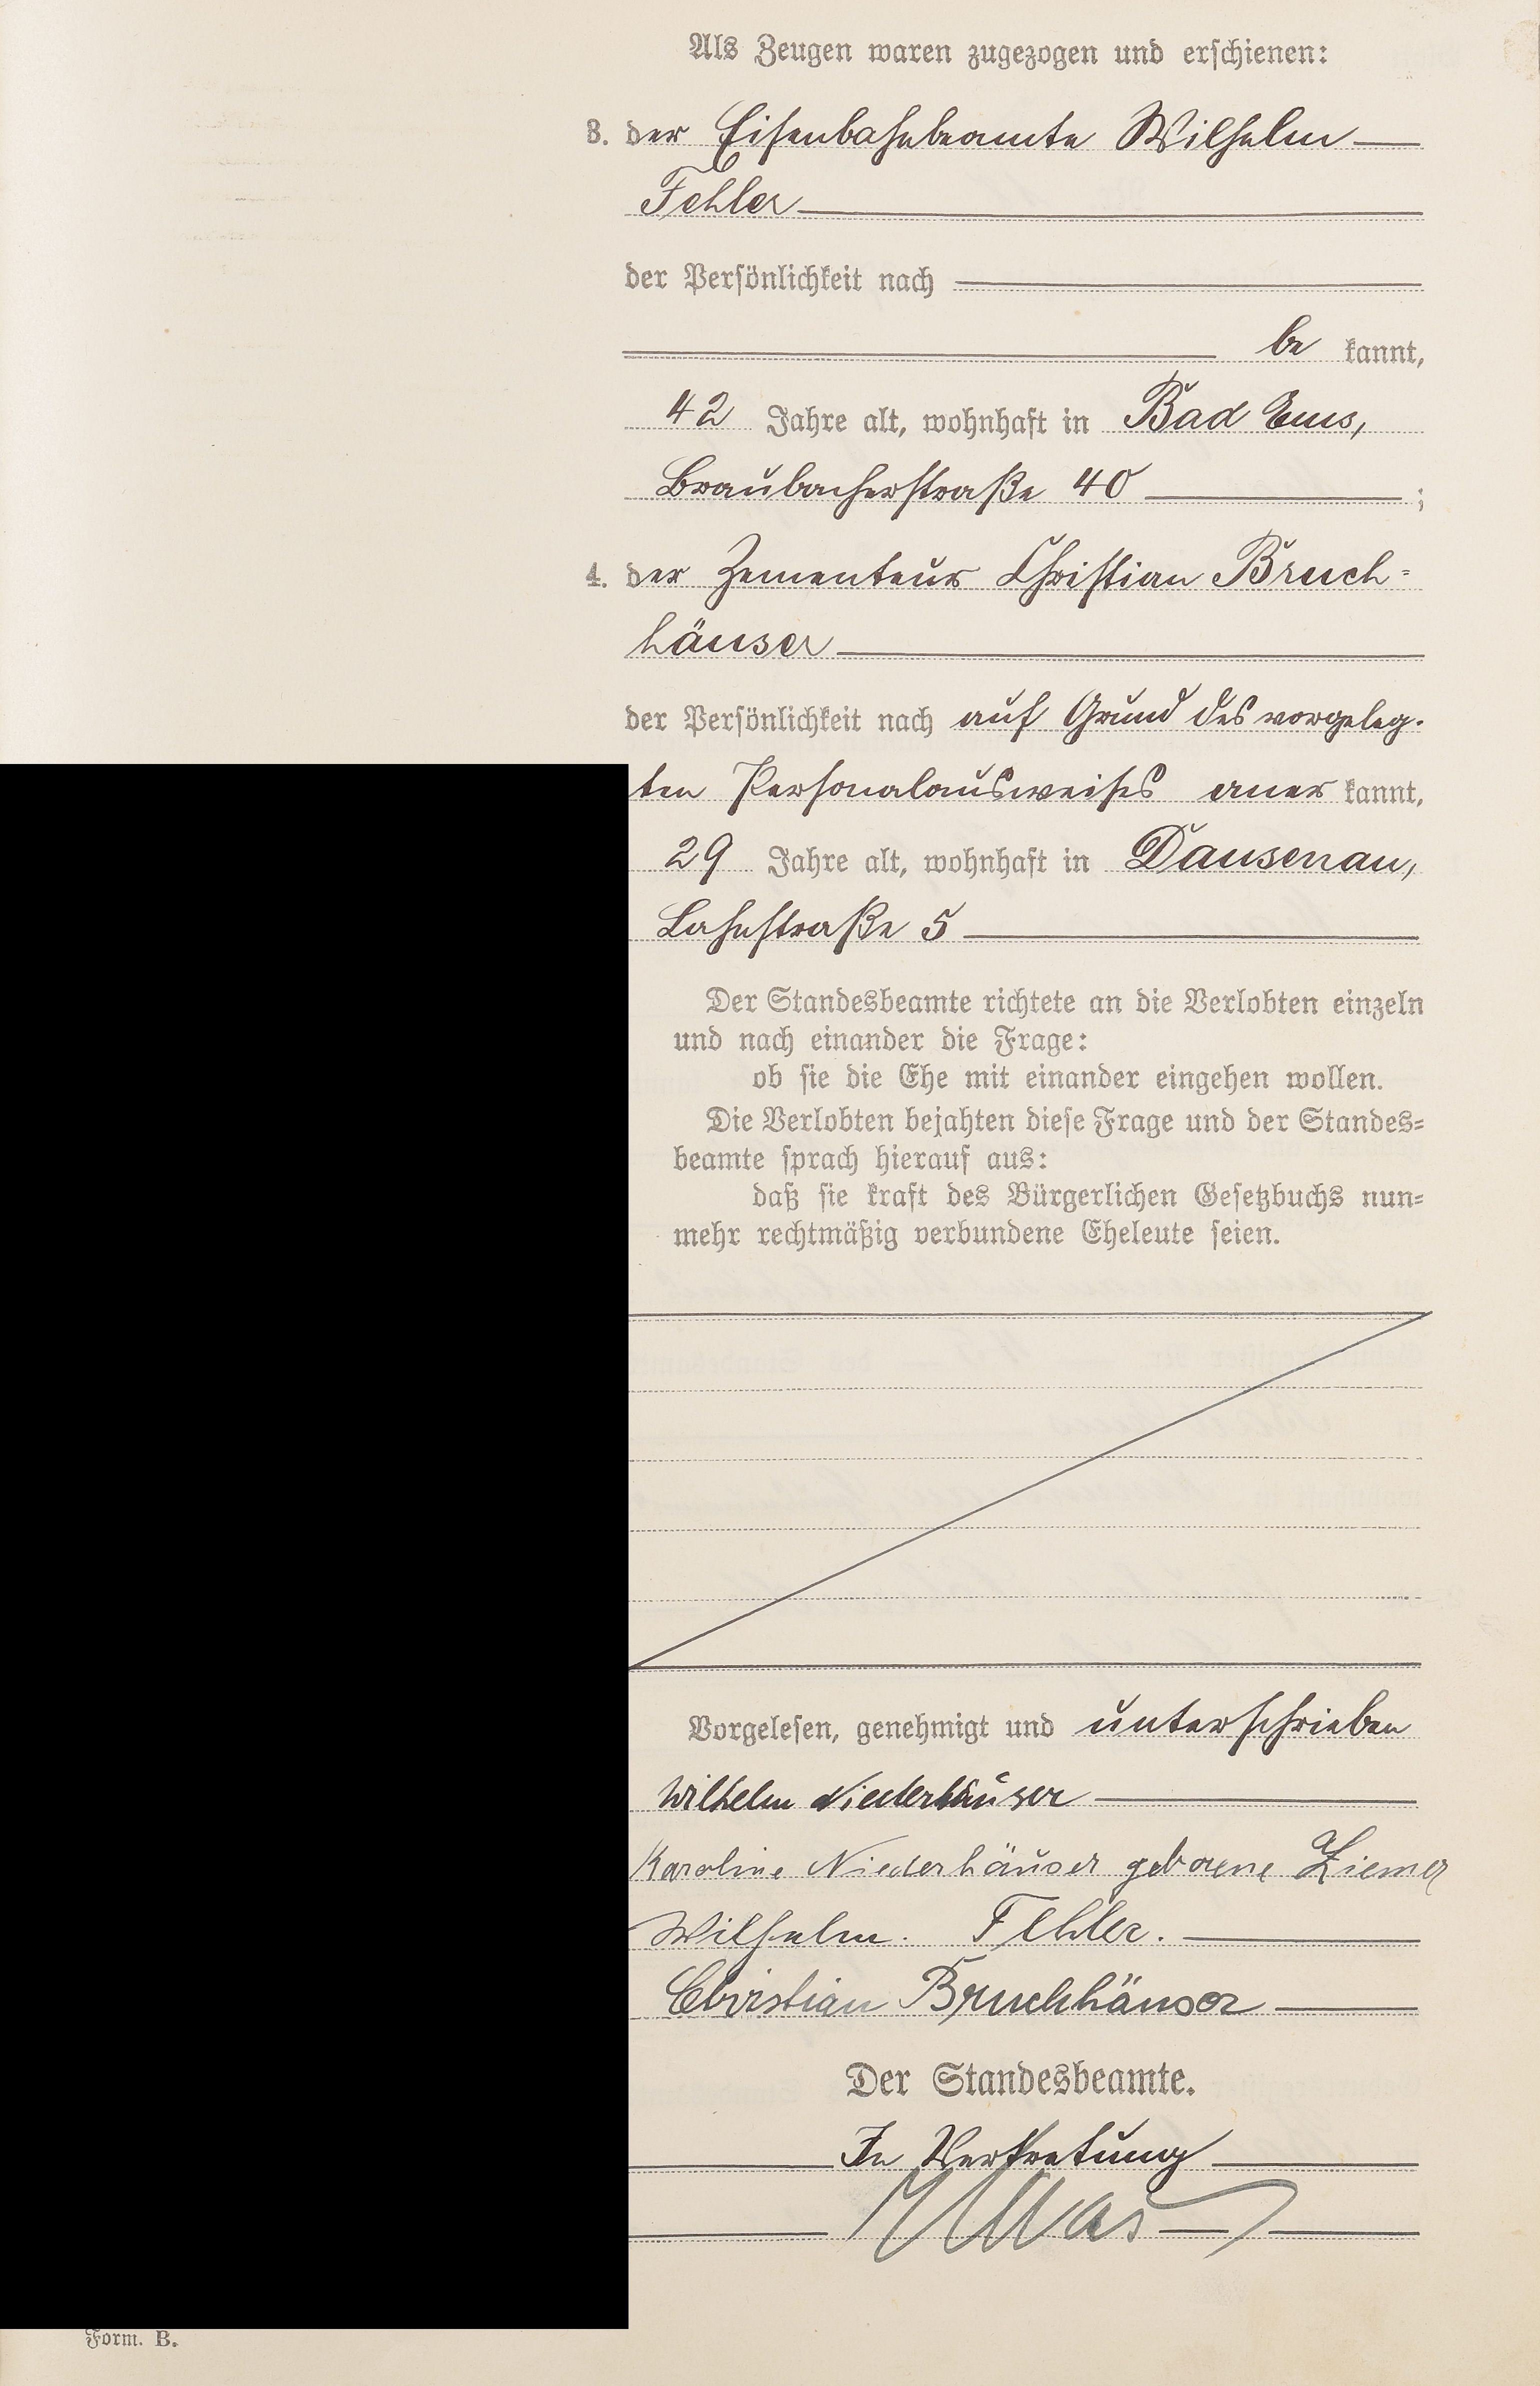 Als Zeugen waren zugezogen und erschienen:
3. der Eisenbahnbeamte Wilhelm
Fehler
der Persönlichkeit nach
be kannt,
42 Jahre alt, wohnhaft in Bad Ems,
Braubacherstraße 40 ;
4. der Zementeur Christian Bruch-
häuser
der Persönlichkeit nach auf Grund des vorgeleg-
ten Personalausweises aner kannt,
29 Jahre alt, wohnhaft in Dausenau,
Lahnstraße 5
Der Standesbeamte richtete an die Verlobten einzeln
und nach einander die Frage:
ob sie die Ehe mit einander eingehen wollen.
Die Verlobten bejahten diese Frage und der Standes-
beamte sprach hierauf aus:
daß sie kraft des Bürgerlichen Gesetzbuchs nun-
mehr rechtmäßig verbundene Eheleute seien.
Vorgelesen, genehmigt und unterschrieben
Wilhelm Niederhäuser
Karoline Niederhäuser geborene Ziemer
Wilhelm. Fehler.
Christian Bruchhäuser
Der Standesbeamte.
In Vertretung
Form. B.